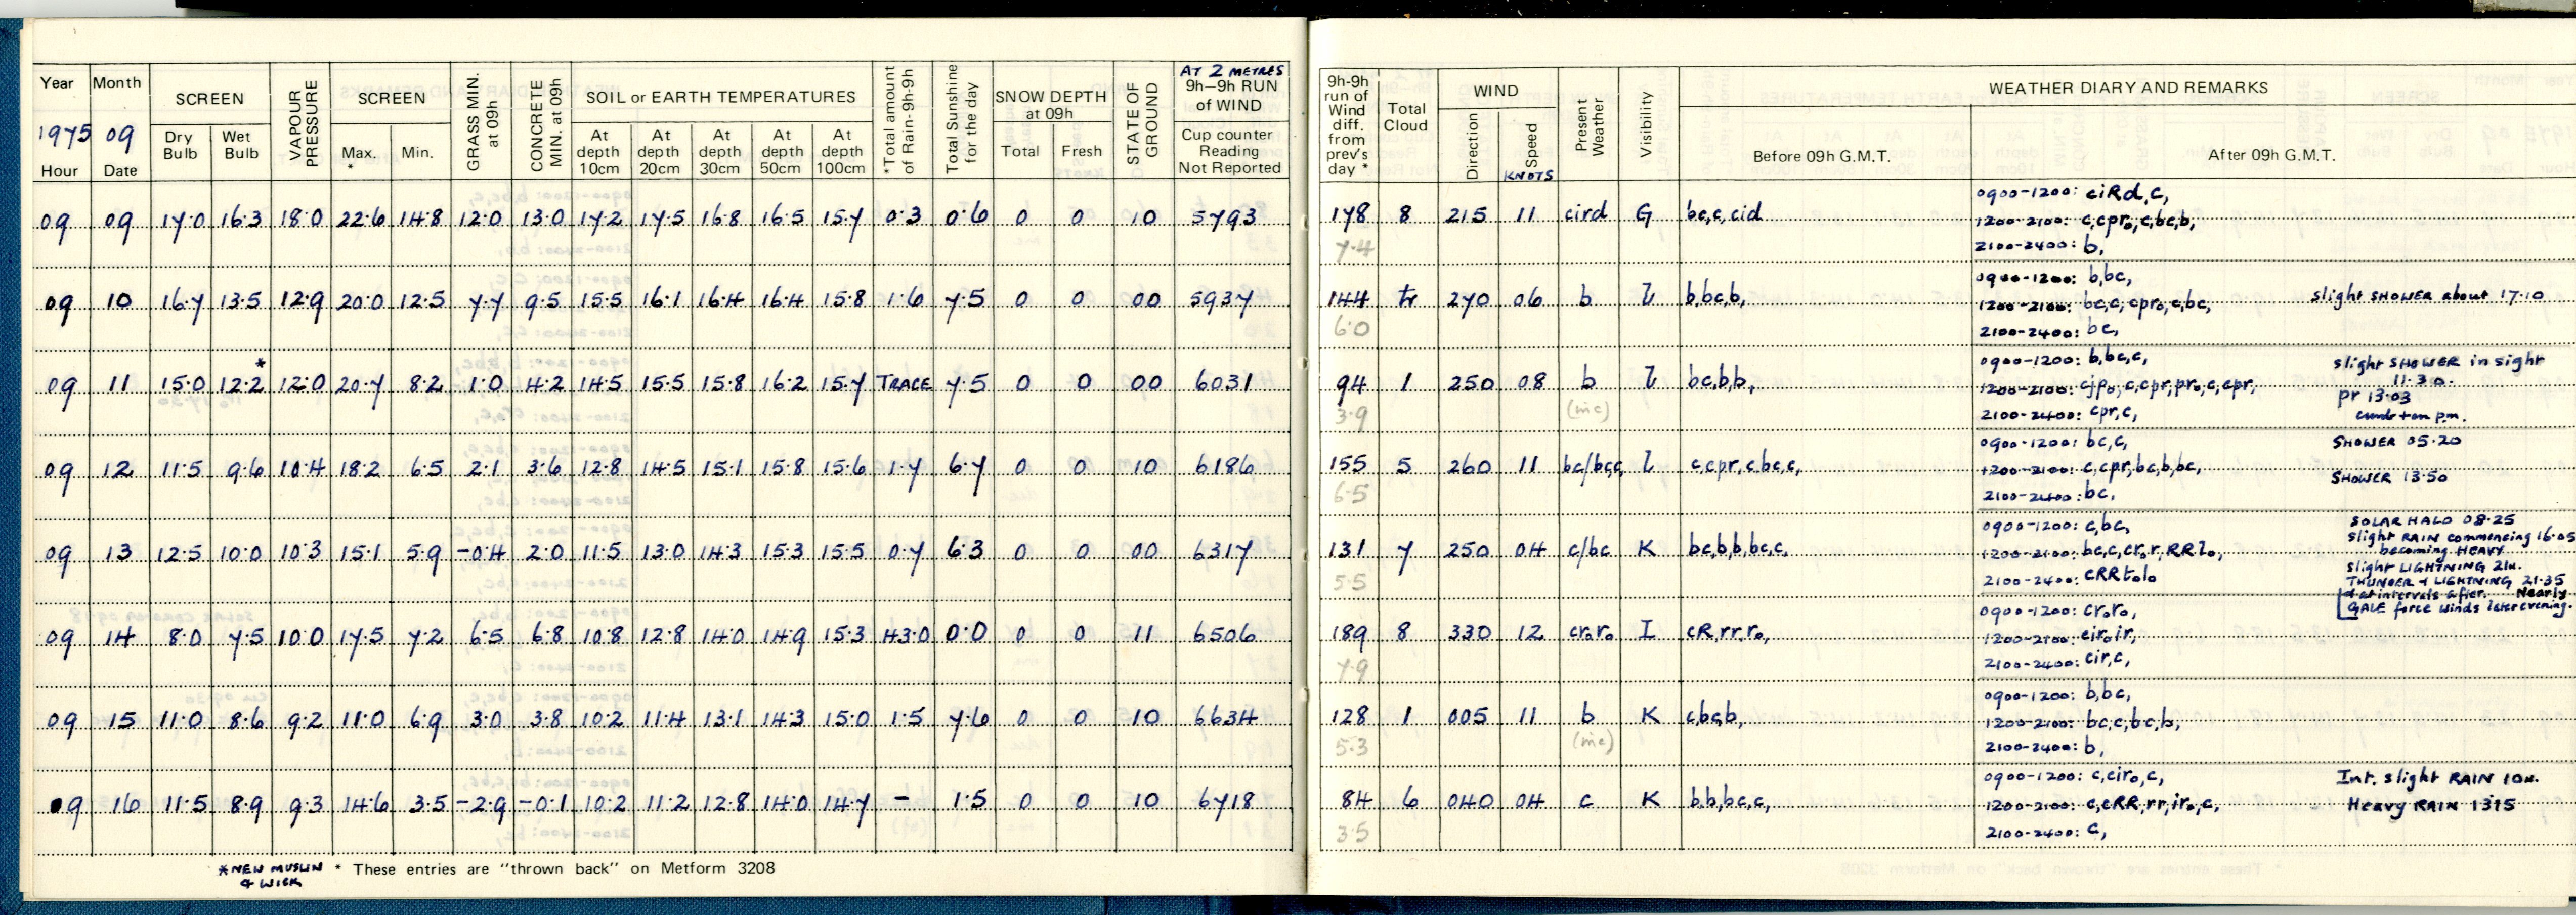 Year Month SCREEN VAPOUR PRESSURE SCREEN GRASS MIN. at 09h CONCRETE MIN. at 09h SOIL or EARTH TEMPERATURES *Total amount of Rain-9h-9h Total Sunshine for the day SNOW DEPTH at 09h STATE OF GROUND AT 2 METRES 9h–9h RUN of WIND
1975 09 Dry Bulb Wet Bulb Max. * Min. At depth 10cm At depth 20cm At depth 30cm At depth 50cm At depth 100cm Total Fresh Cup counter Reading Not Reported
Hour Date
09 09 17.0 16.3 18.0 22.6 14.8 12.0 13.0 17.2 17.5 16.8 16.5 15.7 0.3 0.6 0 0 10 5793
09 10 16.7 13.5 12.9 20.0 12.5 7.7 9.5 15.5 16.1 16.4 16.4 15.8 1.6 7.5 0 0 00 5937
*
09 11 15.0 12.2 12.0 20.7 8.2 1.0 4.2 14.5 15.5 15.8 16.2 15.7 TRACE 7.5 0 0 00 6031
09 12 11.5 9.6 10.4 18.2 6.5 2.1 3.6 12.8 14.5 15.1 15.8 15.6 1.7 6.7 0 0 10 6186
09 13 12.5 10.0 10.3 15.1 5.9 -0.4 2.0 11.5 13.0 14.3 15.3 15.5 0.7 6.3 0 0 00 6317
09 14 8.0 7.5 10.0 17.5 7.2 6.5 6.8 10.8 12.8 14.0 14.9 15.3 43.0 0.0 0 0 11 6506
09 15 11.0 8.6 9.2 11.0 6.9 3.0 3.8 10.2 11.4 13.1 14.3 15.0 1.5 7.6 0 0 10 6634
09 16 11.5 8.9 9.3 14.6 3.5 -2.9 -0.1 10.2 11.2 12.8 14.0 14.7 - 1.5 0 0 10 6718
*NEW MUSLIN & WICK
* These entries are "thrown back" on Metform 3208
9h-9h run of Wind diff. from prev's day * Total Cloud WIND Present Weather Visibility WEATHER DIARY AND REMARKS
Direction Speed KNOTS Before 09h G.M.T. After 09h G.M.T.
0900-1200: ciRd,c,
178 8 215 11 cird G bc,c,cid 1200-2100: c,cpro,c,bc,b,
7.4 2100-2400: b,
0900-1200: b,bc,
144 tr 270 06 b Z b,bc,b, 1200-2100: bc,c,cpro,c,bc, slight SHOWER about 17.10
6.0 2100-2400: bc,
0900-1200: b,bc,c, slight SHOWER in sight 11.30.
94 1 250 08 b Z bc,b,b, 1200-2100: cjpo,c,cpr,pro,c,cpr, pr 13.03
3.9 (mc) 2100-2400: cpr,c, cumb + on p.m.
0900-1200: bc,c, SHOWER 05.20
155 5 260 11 bc/bcc Z c,cpr,c,bc,c, 1200-2100: c,cpr,bc,b,bc, SHOWER 13.50
6.5 2100-2400: bc,
0900-1200: c,bc, SOLAR HALO 08.25
131 7 250 04 c/bc K bc,b,b,bc,c, 1200-2100: bc,c,cro,r,RRlo, slight RAIN commencing 16.05 becoming HEAVY
5.5 2100-2400: cRRtolo slight LIGHTNING 21H.
THUNDER + LIGHTNING 21.35
+ at intervals after. Nearly
GALE force winds later evening.
0900-1200: croro,
189 8 330 12 croro I cR,rr,ro, 1200-2100: ciro,ir,
7.9 2100-2400: cir,c,
0900-1200: b,bc,
128 1 005 11 b K c,bc,b, 1200-2100: bc,c,bc,b,
5.3 (mc) 2100-2400: b,
0900-1200: c,ciro,c, Int. slight RAIN 10H.
84 6 040 04 c K b,b,bc,c, 1200-2100: c,cRR,rr,iro,c, Heavy RAIN 1315
3.5 2100-2400: c,